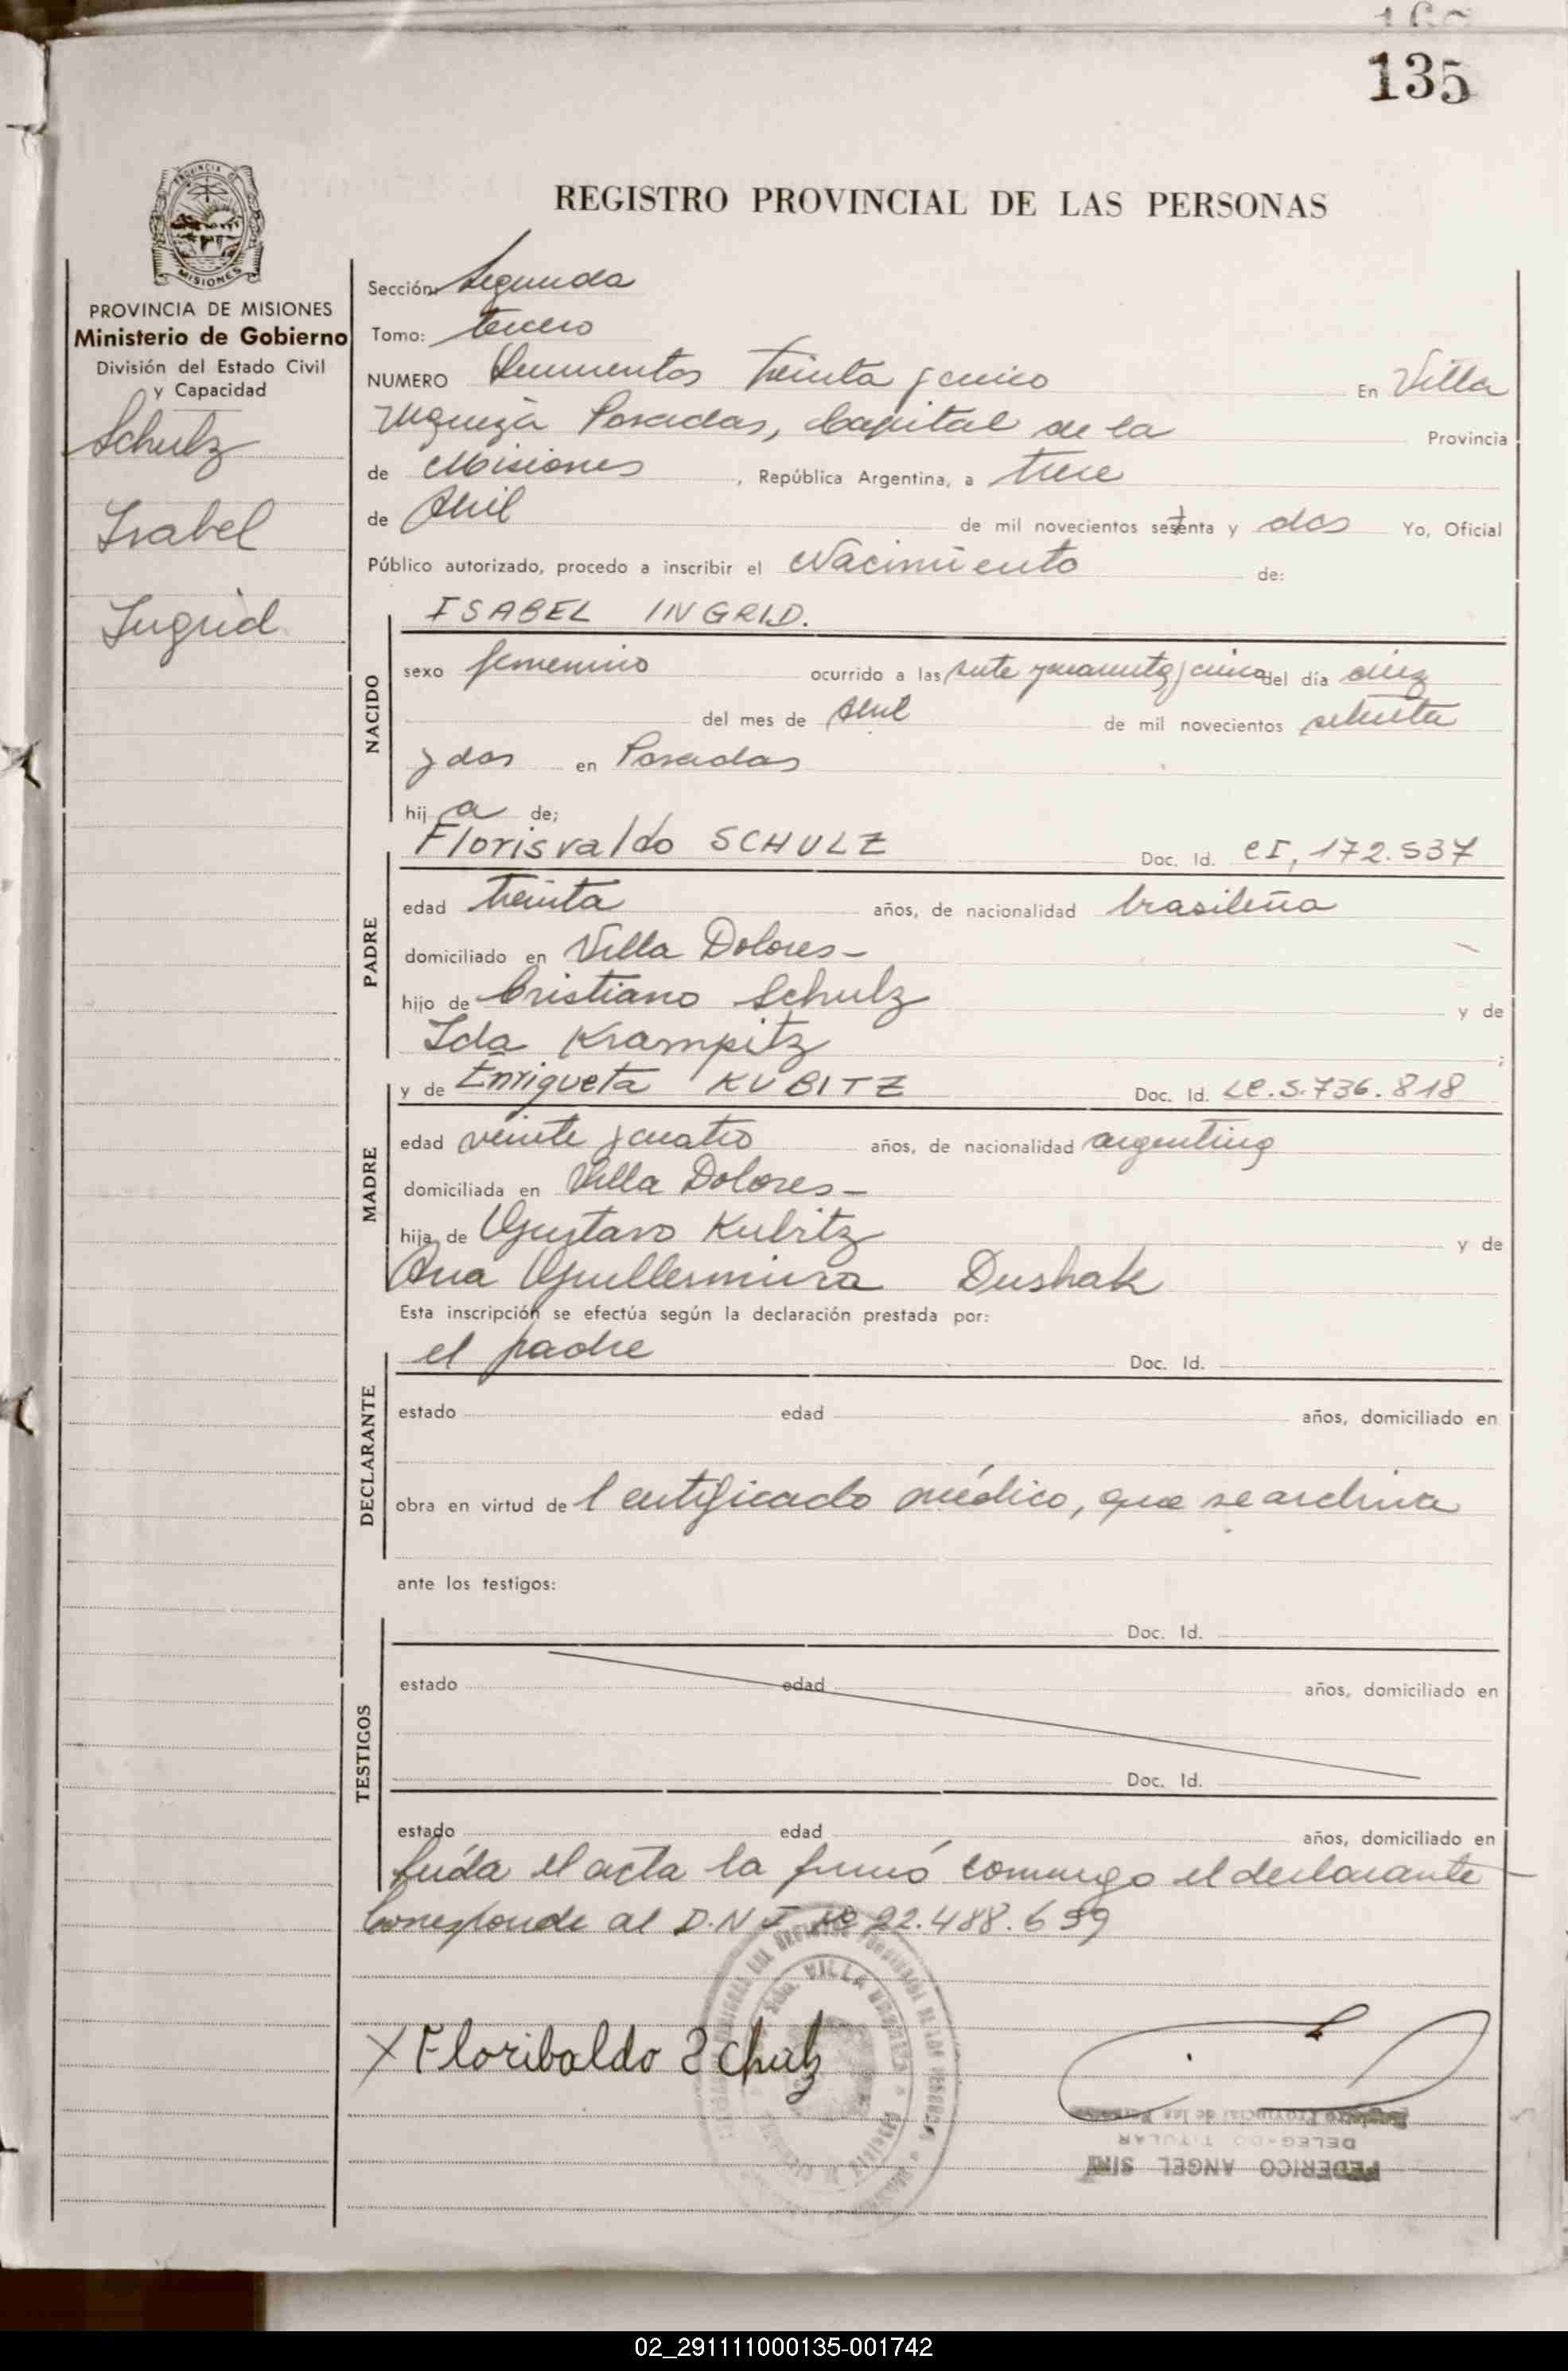 135
REGISTRO PROVINCIAL DE LAS PERSONAS
PROVINCIA DE
MISIONES
PROVINCIA DE MISIONES
Ministerio de Gobierno
División del Estado Civil
y Capacidad
Schulz
Isabel
Ingrid
Sección: Segunda
Tomo: tercero
NUMERO treinta y cinco En Villa
Urquiza Posadas, Capital de la Provincia
de Misiones, República Argentina, a trece
de Abril de mil novecientos setenta y dos Yo, Oficial
Público autorizado, procedo a inscribir el Nacimiento de:
NACIDO
ISABEL INGRID.
sexo femenino ocurrido a las siete y cuarenta y cinco del día diez
del mes de Abril de mil novecientos setenta
y dos en Posadas
hij a de;
PADRE
Florisvaldo SCHULZ Doc. Id. CI, 172.537
edad treinta años, de nacionalidad brasileña
domiciliado en Villa Dolores-
hijo de Cristiano Schulz y de
Ida Krampitz ;
MADRE
y de Enriqueta KUBITZ Doc. Id. LC.5.736.818
edad veinte y cuatro años, de nacionalidad argentina
domiciliada en Villa Dolores-
hija de Gustavo Kubitz y de
Ana Guillermina Dushak
Esta inscripción se efectúa según la declaración prestada por:
DECLARANTE
el padre Doc. Id.
estado edad años, domiciliado en
obra en virtud del certificado médico, que se archiva
ante los testigos:
TESTIGOS
Doc. Id.
estado edad años, domiciliado en
Doc. Id.
estado edad años, domiciliado en
Leída el acta la firmó conmigo el declarante
Corresponde al D.N.I Nº 22.488.659
X Floribaldo Schulz
VILLA URQUIZA
Registro Provincial de las Personas
DELEGADO TITULAR
FEDERICO ANGEL SINI
02_291111000135-001742